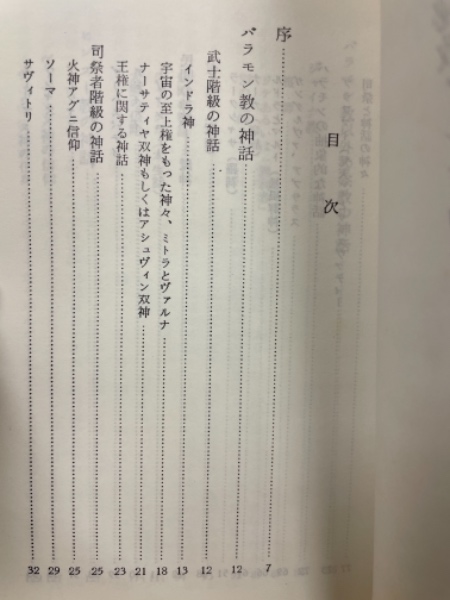 目次
序 7
バラモン教の神話 12
武士階級の神話 12
インドラ神 13
宇宙の至上権をもった神々、ミトラとヴァルナ 18
ナーサティヤ双神もしくはアシュヴィン双神 21
王権に関する神話 23
司祭者階級の神話 25
火神アグニ信仰 25
ソーマ 29
サヴィトリ 32